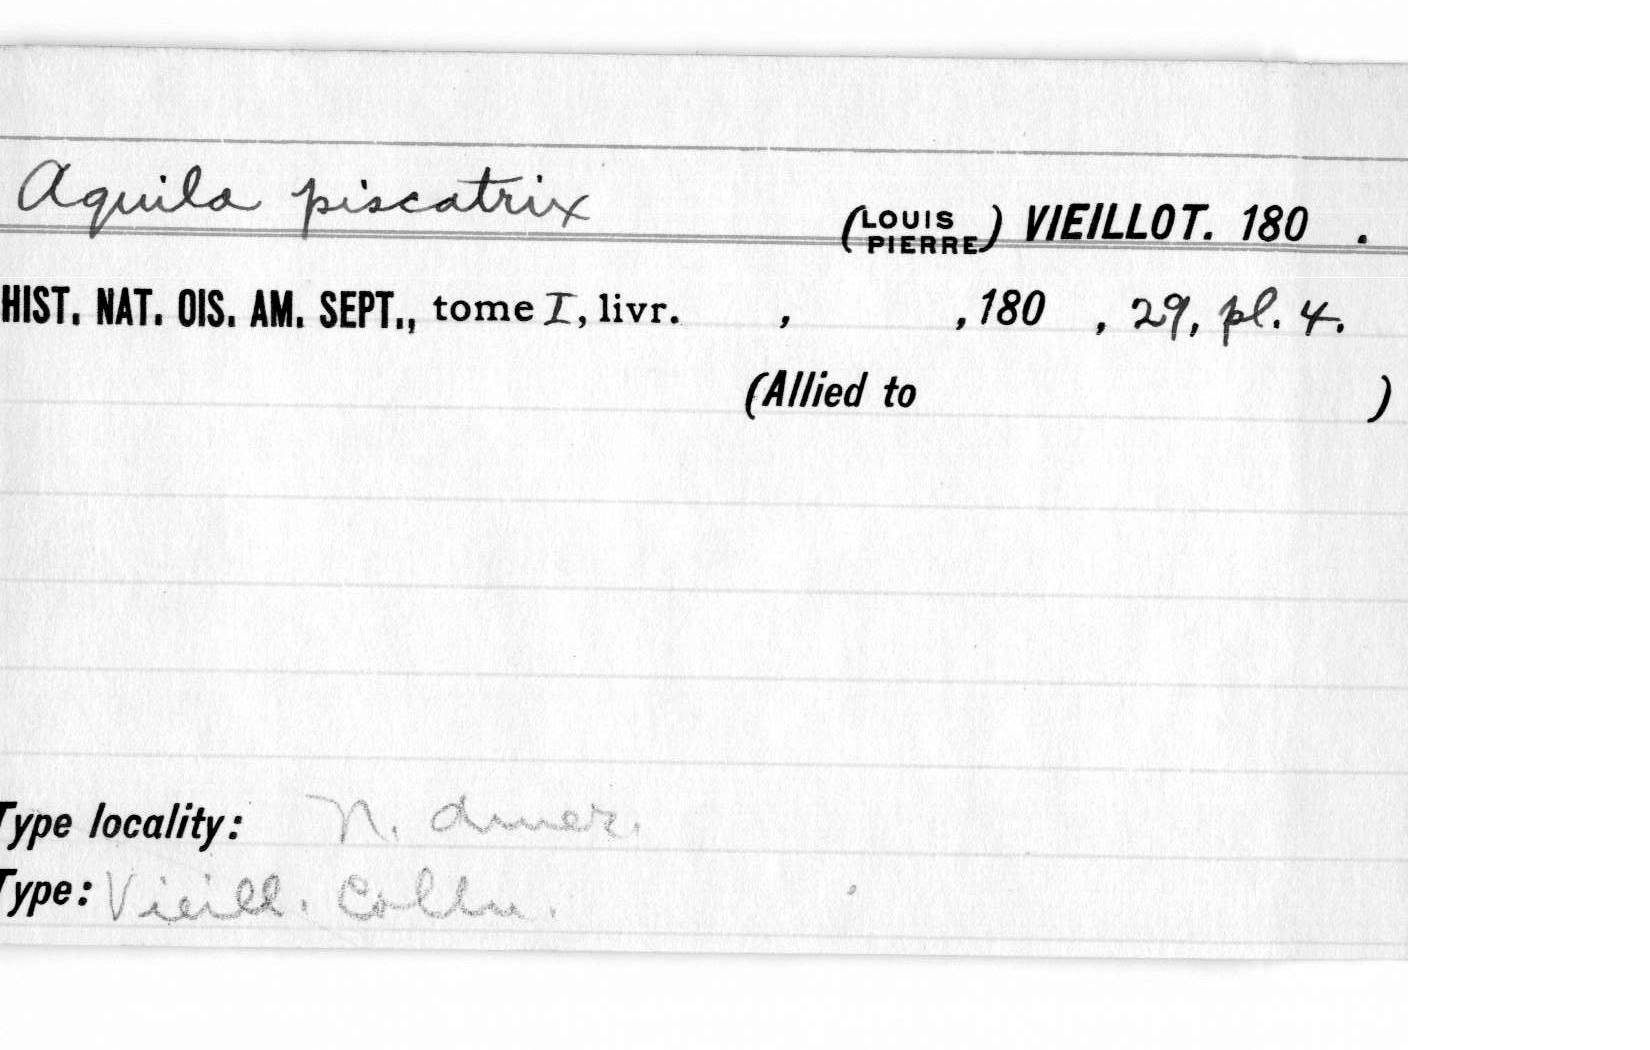 Aquila piscatrix (LOUIS PIERRE) VIEILLOT. 180 .
HIST. NAT. OIS. AM. SEPT., tome I, livr. , ,180 , 29, pl. 4.
(Allied to )
Type locality: N. Amer.
Type: Vieill. Colln.